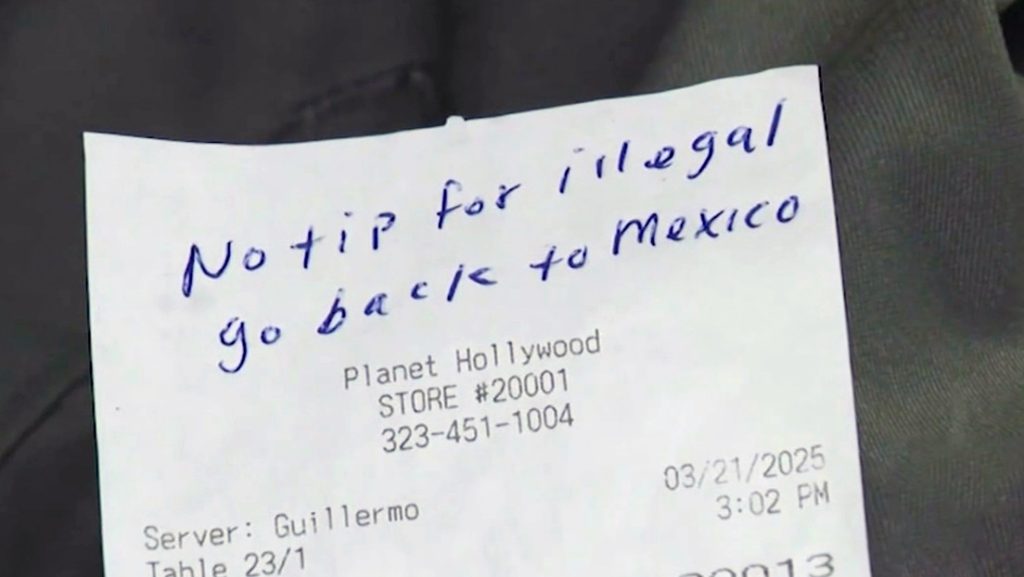 No tip for illegal
go back to Mexico
Planet Hollywood
STORE #20001
323-451-1004
03/21/2025
3:02 PM
Server: Guillermo
Table 23/1